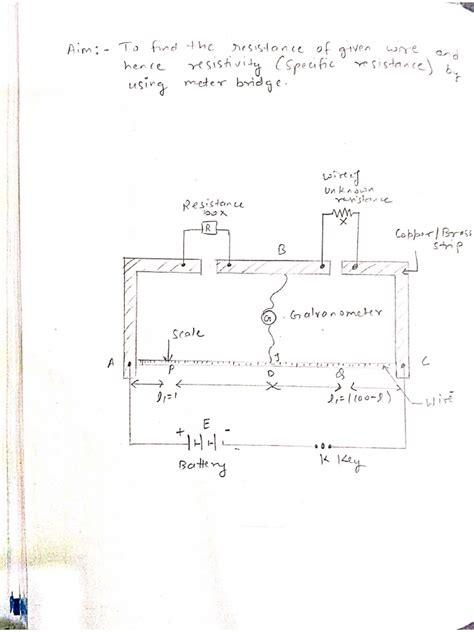 Aim:- To find the resistance of given wire and
hence resistivity (Specific resistance) by
using meter bridge.
Resistance
box
R
wire of
unknown
resistance
X
Copper/Brass
strip
B
G
Galvanometer
Scale
A
P
J
D
Q
C
l₁=l
l₁=(100-l)
wire
+ E -
Battery
K Key